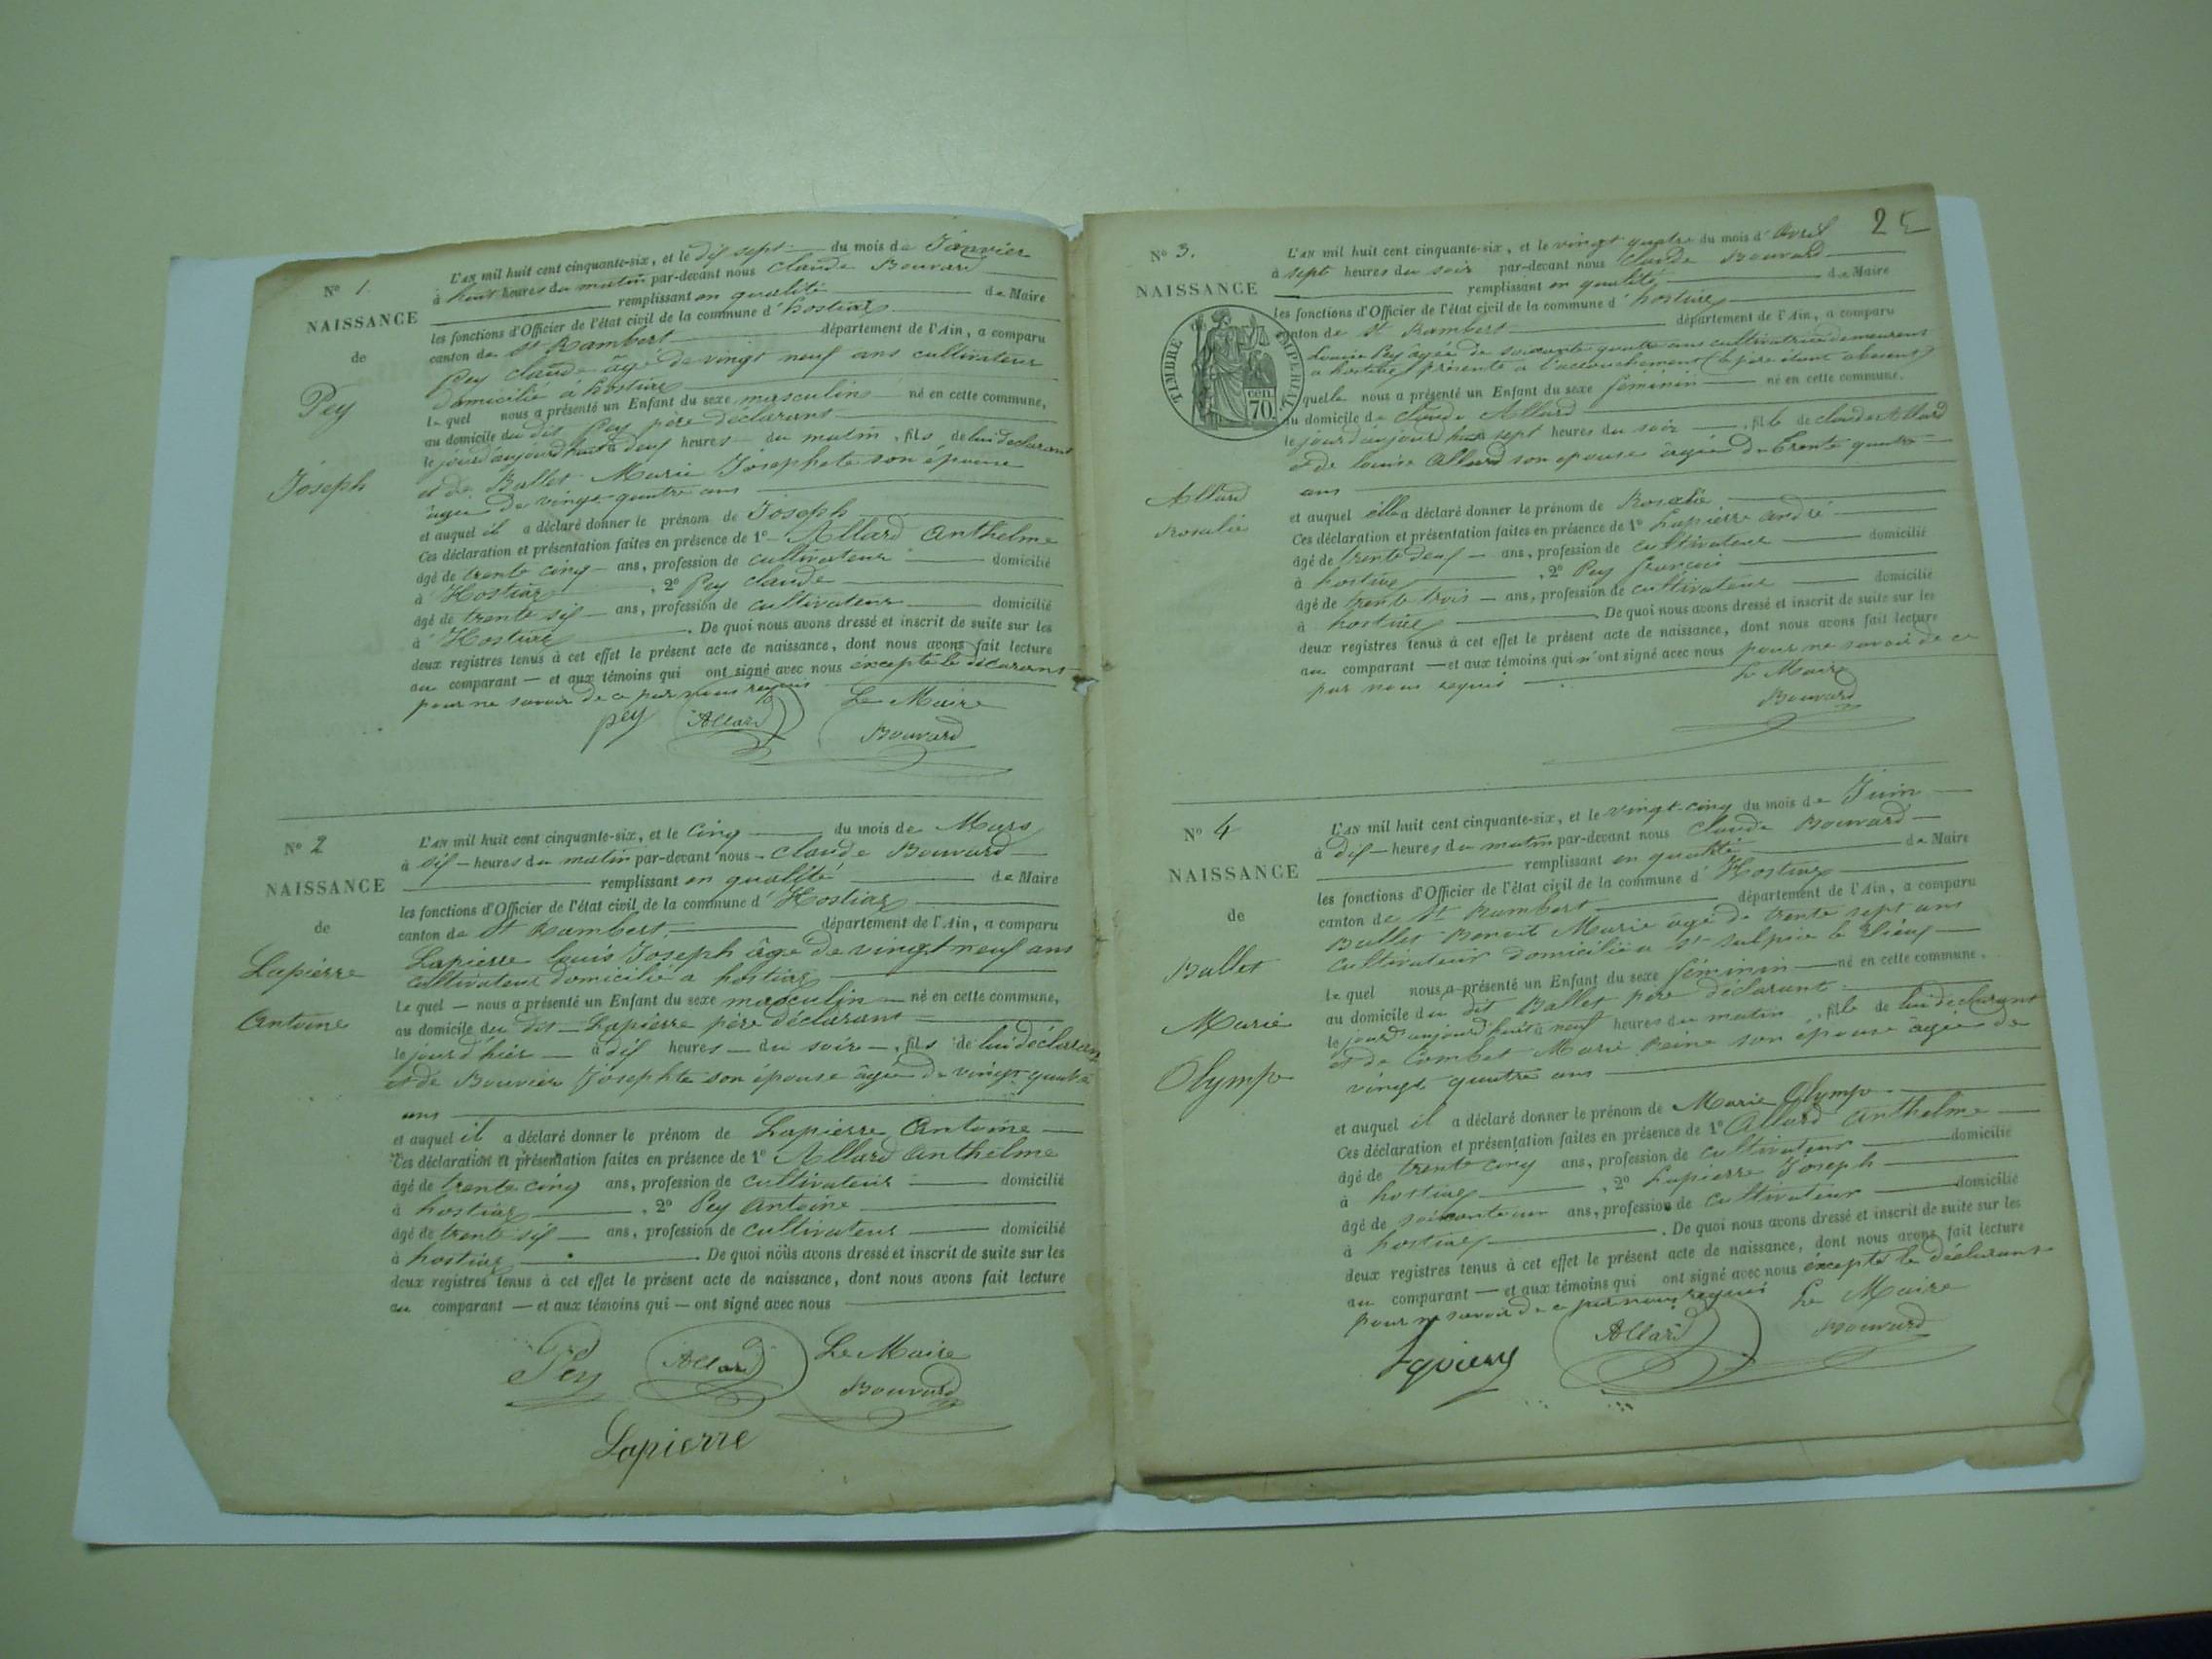 N° 1
NAISSANCE
de
Pey
Joseph
L'AN mil huit cent cinquante-six, et le dix sept du mois de Janvier
à huit heures du matin par-devant nous Claude Bouvard
remplissant en qualité de Maire
les fonctions d'Officier de l'état civil de la commune d'hostiaz
canton de St Rambert département de l'Ain, a comparu
Pey Claude âgé de vingt neuf ans cultivateur
domicilié à hostiaz
le quel nous a présenté un Enfant du sexe masculin né en cette commune,
au domicile du dit Pey père déclarant
le jour d'aujourd'hui à deux heures du matin, fils de lui déclarant
et de Ballet Marie Josephete son épouse
agée de vingt quatre ans
et auquel il a déclaré donner le prénom de Joseph
Ces déclaration et présentation faites en présence de 1° Allard Anthelme
âgé de trente cinq ans, profession de cultivateur domicilié
à Hostiaz, 2° Pey Claude
âgé de trente six ans, profession de cultivateur domicilié
à Hostiaz. De quoi nous avons dressé et inscrit de suite sur les
deux registres tenus à cet effet le présent acte de naissance, dont nous avons fait lecture
au comparant — et aux témoins qui ont signé avec nous excepté le déclarant
pour ne savoir de ce par nous requis
pey Allard Le Maire
Bouvard
N° 2
NAISSANCE
de
Lapierre
Antoine
L'AN mil huit cent cinquante-six, et le Cinq du mois de Mars
à six heures du matin par-devant nous Claude Bouvard
remplissant en qualité de Maire
les fonctions d'Officier de l'état civil de la commune d'Hostiaz
canton de St Rambert département de l'Ain, a comparu
Lapierre louis Joseph âgé de vingt neuf ans
cultivateur domicilié a hostiaz
le quel — nous a présenté un Enfant du sexe masculin — né en cette commune,
au domicile du dit Lapierre père déclarant
le jour d'hier à dix heures du soir, fils de lui déclarant
et de Bouvier Josephte son épouse âgée de vingt quatre
ans
et auquel il a déclaré donner le prénom de Lapierre Antoine
Ces déclaration et présentation faites en présence de 1° Allard Anthelme
âgé de trente cinq ans, profession de cultivateur domicilié
à hostiaz, 2° Pey Antoine
âgé de trente six ans, profession de cultivateur domicilié
à hostiaz. De quoi nous avons dressé et inscrit de suite sur les
deux registres tenus à cet effet le présent acte de naissance, dont nous avons fait lecture
au comparant — et aux témoins qui — ont signé avec nous
Pey Allard Le Maire
Bouvard
Lapierre
25
N° 3.
NAISSANCE
TIMBRE IMPERIAL
cen. 70
Allard
Rosalie
L'AN mil huit cent cinquante-six, et le vingt quatre du mois d'Avril
à sept heures du soir par-devant nous Claude Bouvard
remplissant en qualité de Maire
les fonctions d'Officier de l'état civil de la commune d'hostiaz
canton de St Rambert département de l'Ain, a comparu
Louise Pey âgée de soixante quatre ans cultivatrice demeurant
a hostiaz présente a l'accouchement (le père étant absent)
quelle nous a présenté un Enfant du sexe féminin né en cette commune.
au domicile de Claude Allard
le jour d'aujourd'hui à sept heures du soir, fille de claude Allard
et de louise Allard son epouse âgée de trente quatre
ans
et auquel elle a déclaré donner le prénom de Rosalie
Ces déclaration et présentation faites en présence de 1° Lapierre andré
âgé de trente deux ans, profession de cultivateur domicilié
à hostiaz, 2° Pey francois
âgé de trente trois ans, profession de cultivateur domicilié
à hostiaz De quoi nous avons dressé et inscrit de suite sur les
deux registres tenus à cet effet le présent acte de naissance, dont nous avons fait lecture
au comparant — et aux témoins qui n'ont signé avec nous pour ne savoir de ce
par nous requis
Le Maire
Bouvard
N° 4
NAISSANCE
de
Ballet
Marie
Olympe
L'AN mil huit cent cinquante-six, et le vingt-cinq du mois de Juin
à dix heures du matin par-devant nous Claude Bouvard
remplissant en qualité de Maire
les fonctions d'Officier de l'état civil de la commune d'Hostiaz
canton de St Rambert département de l'Ain, a comparu
Ballet Benoit Marie âgé de trente sept ans
cultivateur domicilié a St sulpice le Vieux
le quel nous a présenté un Enfant du sexe féminin né en cette commune.
au domicile du dit Ballet père déclarant
le jour d'aujourd'hui à neuf heures du matin, fille de lui déclarant
et de Combet Marie Reine son épouse âgée de
vingt quatre ans
et auquel il a déclaré donner le prénom de Marie Olympe
Ces déclaration et présentation faites en présence de 1° Allard Anthelme
âgé de trente cinq ans, profession de cultivateur domicilié
à hostiaz, 2° Lapierre Joseph
âgé de soixante un ans, profession de cultivateur domicilié
à hostiaz. De quoi nous avons dressé et inscrit de suite sur les
deux registres tenus à cet effet le présent acte de naissance, dont nous avons fait lecture
au comparant — et aux témoins qui ont signé avec nous excepté le déclarant
pour ne savoir de ce par nous requis
Allard Le Maire
Bouvard